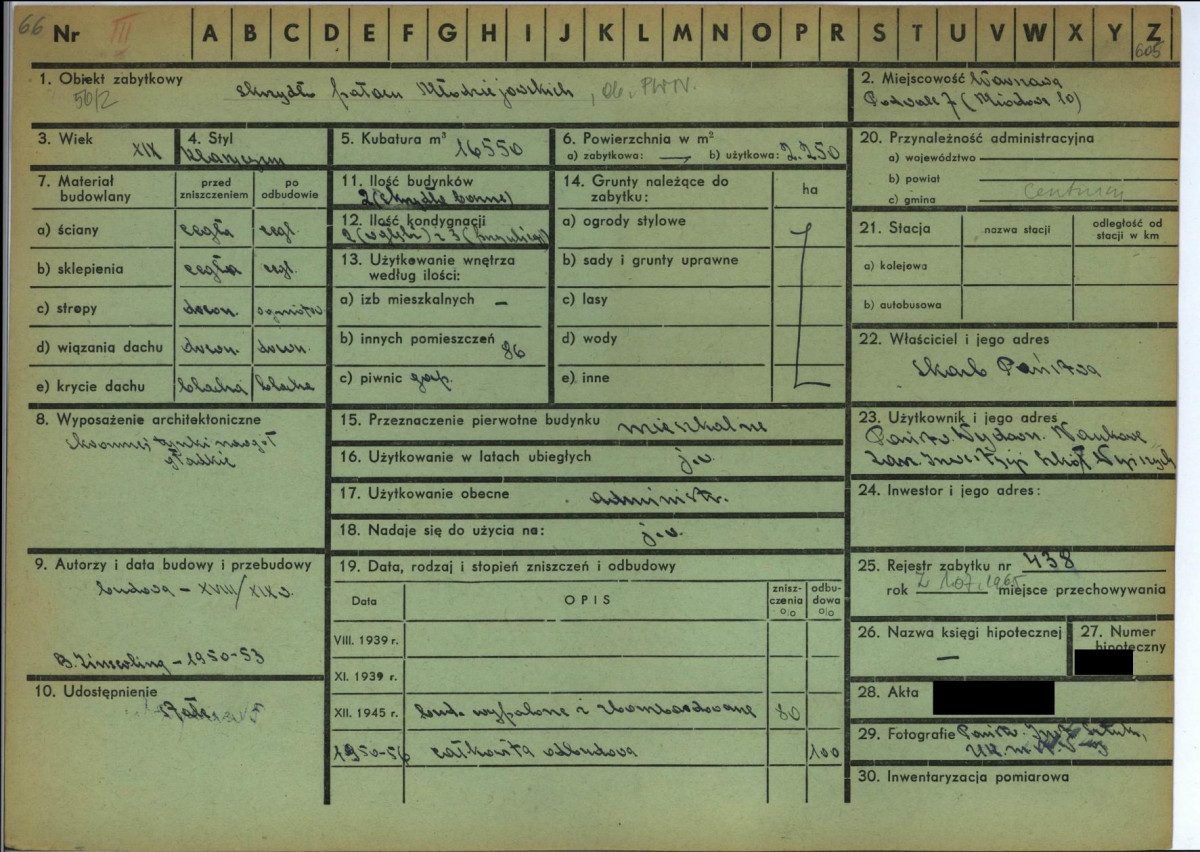 66 Nr III A B C D E F G H I J K L M N O P R S T U V W X Y Z 605
1. Obiekt zabytkowy skrzydło pałacu Młodziejowskich, ob. PWN.
50/2
2. Miejscowość Warszawa
Podwale 7 (Miodowa 10)
3. Wiek XIX
4. Styl klasycyzm
5. Kubatura m³ 16550
6. Powierzchnia w m²
a) zabytkowa: — b) użytkowa: 2.250
7. Materiał budowlany
przed zniszczeniem
po odbudowie
a) ściany cegła cegł.
b) sklepienia cegła cegł.
c) stropy drewn. ogniotrw.
d) wiązania dachu drewn. drewn.
e) krycie dachu blacha blacha
8. Wyposażenie architektoniczne
skromne, tynki
gładkie
9. Autorzy i data budowy i przebudowy
budowa – XVIII/XIX w.
B. Zinserling – 1950-53
10. Udostępnienie
11. Ilość budynków
2 (skrzydła boczne)
12. Ilość kondygnacji
13. Użytkowanie wnętrza
według ilości:
a) izb mieszkalnych –
b) innych pomieszczeń 86
c) piwnic
14. Grunty należące do
zabytku:
ha
a) ogrody stylowe
b) sady i grunty uprawne
c) lasy
d) wody
e) inne
15. Przeznaczenie pierwotne budynku mieszkalne
16. Użytkowanie w latach ubiegłych j.w.
17. Użytkowanie obecne administr.
18. Nadaje się do użycia na: j.w.
19. Data, rodzaj i stopień zniszczeń i odbudowy
Data OPIS znisz-czenia o/o odbu-dowa o/o
VIII. 1939 r.
XI. 1939 r.
XII. 1945 r. bud. wypalone i zbombardowane 80
1950-56 całkowita odbudowa 100
20. Przynależność administracyjna
a) województwo
b) powiat
c) gmina
21. Stacja nazwa stacji odległość od stacji w km
a) kolejowa
b) autobusowa
22. Właściciel i jego adres
Skarb Państwa
23. Użytkownik i jego adres
Państw. Wydawn. Naukowe
Zarz. Inwestycji Szkół Wyższych
24. Inwestor i jego adres:
25. Rejestr zabytku nr 438
rok z 1.07.1965 miejsce przechowywania
26. Nazwa księgi hipotecznej
—
27. Numer
hipoteczny
28. Akta
29. Fotografie Państw. Inst. Sztuki,
30. Inwentaryzacja pomiarowa